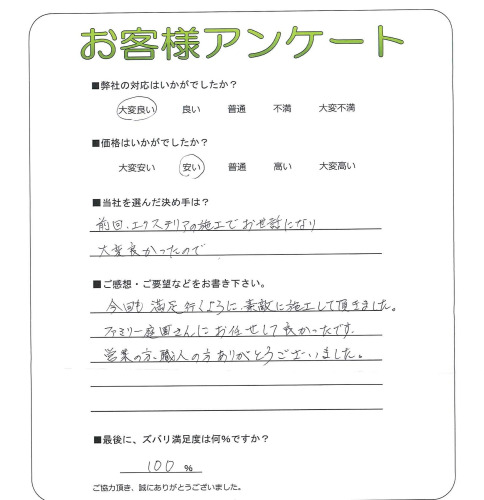 お客様アンケート
■弊社の対応はいかがでしたか？
大変良い 良い 普通 不満 大変不満
■価格はいかがでしたか？
大変安い 安い 普通 高い 大変高い
■当社を選んだ決め手は？
前回、エクステリアの施工でお世話になり
大変良かったので
■ご感想・ご要望などをお書き下さい。
今回も満足行くように、素敵に施工して頂きました。
ファミリー庭園さんにお任せして良かったです。
営業の方、職人の方ありがとうございました。
■最後に、ズバリ満足度は何％ですか？
100 %
ご協力頂き、誠にありがとうございました。